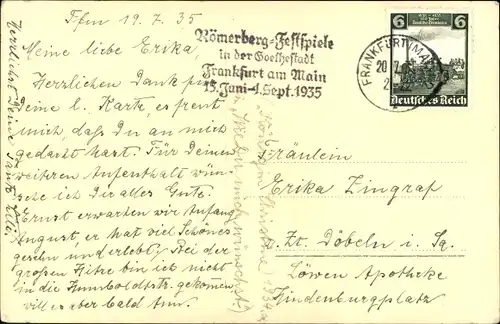 Ffm 19.7.35
Meine liebe Erika,
Herzlichen Dank für
Deine l. Karte, es freut
mich, daß Du an mich
gedacht hast. Für Deinen
weiteren Aufenthalt wün-
sche ich Dir alles Gute.
Ernst erwarten wir Anfang
August, er hat viel Schönes
gesehn und erlebt. Bei der
großen Hitze bin ich nicht
in die Humboldtstr. gekommen
will es aber bald tun.
Herzlichst Deine Tante
Römerberg-Festspiele
in der Goethestadt
Frankfurt am Main
15. Juni-1. Sept. 1935
FRANKFURT (MAIN)
20.7.
6 6
Deutsches Reich
Fräulein
Erika Zingraf
z. Zt. Döbeln i. Sa.
Löwen Apotheke
Hindenburgplatz